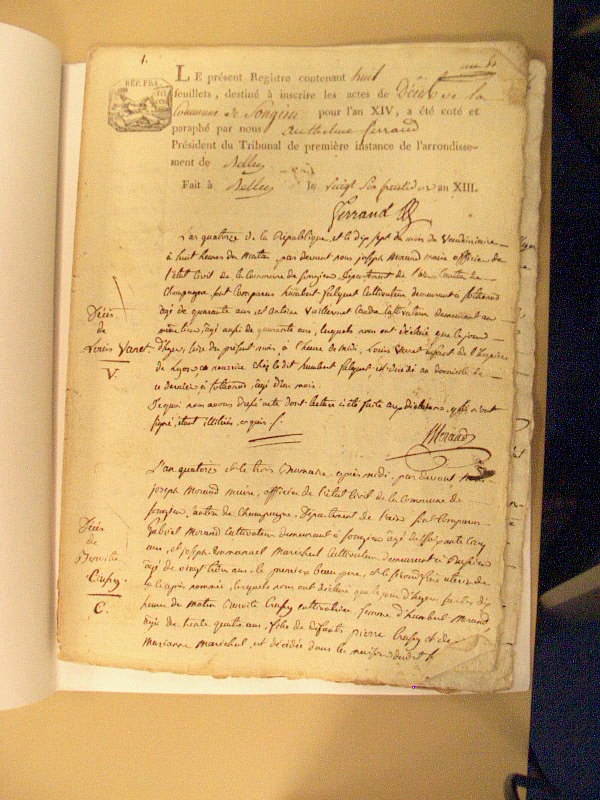 1.
RÉP. FRA
LE présent Registre contenant huit
feuillets, destiné à inscrire les actes de Décès de la
Commune de Songieu pour l'an XIV, a été coté et
paraphé par nous Anthelme Ferrand
Président du Tribunal de première instance de l'arrondisse-
ment de Belley
Fait à Belley le vingt six fructidor an XIII.
Ferrand
L'an quatorze de la République, et le dix sept du mois de Vendémiaire
à huit heures du matin, par devant nous joseph Moraud maire officier de
l'état civil de la Commune de Songieu, Département de l'ain, Canton de
Champagne, sont comparus humbert falquet Cultivateur demeurant à
âgé de quarante ans et Antoine Cultivateur Demeurant au
même lieu, âgé aussi de quarante ans, lesquels nous ont déclaré que le jour
D'hyer, seize du présent mois, à l'heure de midi, Louis Venet de l'hospice
de Lyon en nourrice chez ledit humbert falquet est décédé au domicile de
ce dernier, à âgé d'un mois.
De quoi nous avons dressé acte dont lecture a été faite aux Déclarans, qui n'ont
signé, étant illitérés, enquis
Décès
de
Louis Venet
V.
JMoraud
L'an quatorze et le trois Brumaire, après midi, par devant nous
joseph Moraud maire, officier de l'état Civil de la Commune de
Songieu, canton de Champagne, Département de l'ain sont Comparus
Gabriel Moraud Cultivateur demeurant à Songieu âgé de soixante cinq
ans, et joseph Emmanuel Marechal Cultivateur demeurant à Songieu
âgé de vingt trois ans, le premier beau pere, et le second frere uterin de
la ci après nommée, lesquels nous ont déclaré que le jour d'hyer, sur les dix
heures du matin Benoite Crussy cultivatrice femme d'humbert Moraud
âgée de trente quatre ans, fille de défunts pierre Crussy et de
Marianne Maréchal, est décédée dans la maison dudit
Décès
de
Benoite
Crussy
C.